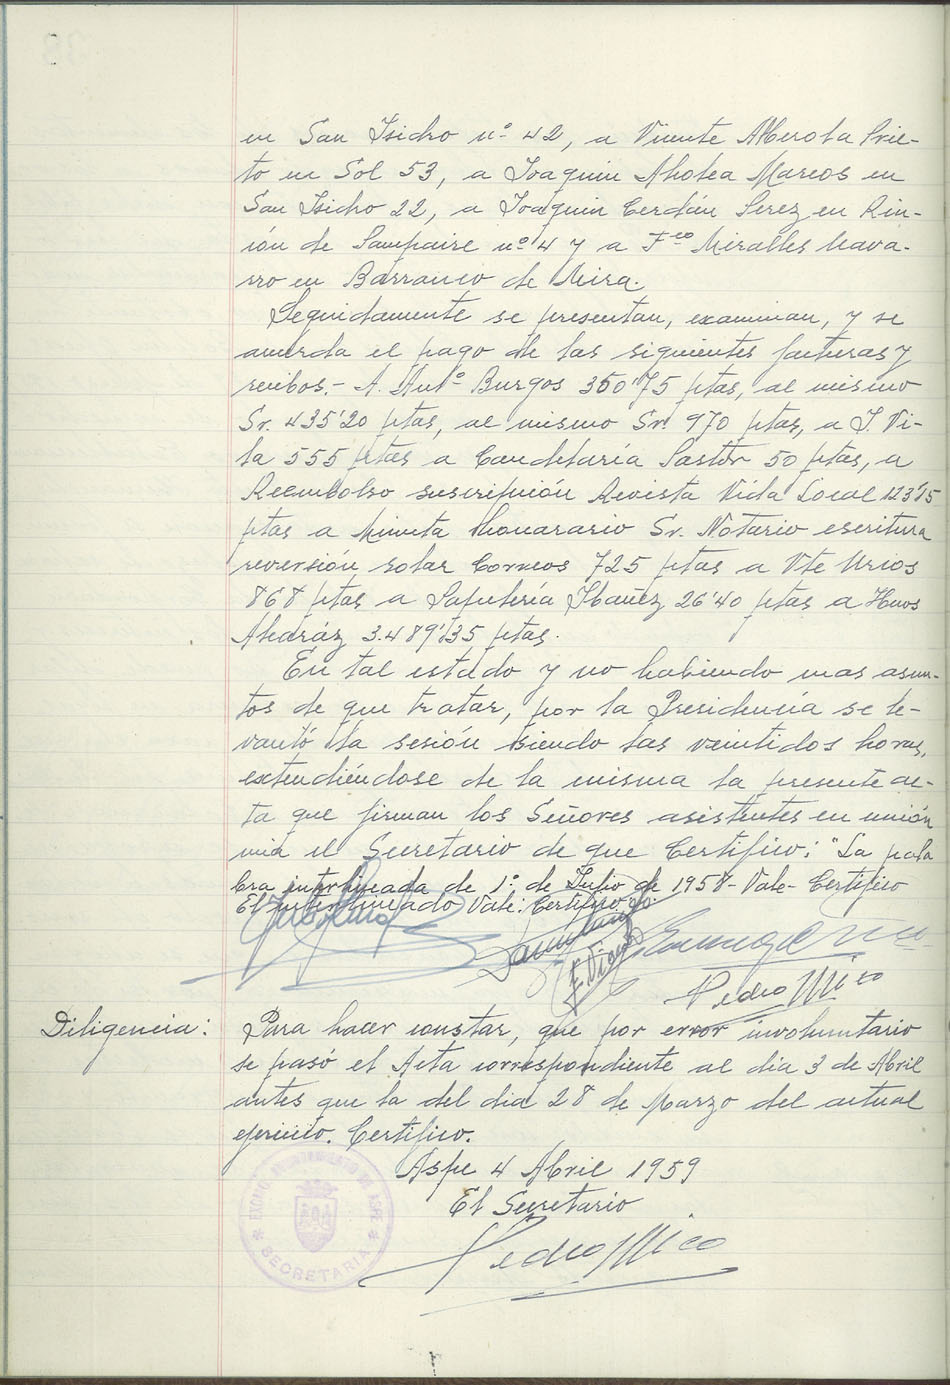 en San Isidro nº 42, a Vicente Alberola Prie-
to en Sol 53, a Joaquin Abolea Marcos en
San Isidro 22, a Joaquin Cerdán Perez en Rin-
ión de Sampaire nº 4 y a Fco Miralles Nava-
rro en Barranco de Mira.
Seguidamente se presentan, examinan, y se
acuerda el pago de las siguientes facturas y
recibos.- A. Antº Burgos 350'75 ptas, al mismo
Sr. 435'20 ptas, al mismo Sr. 970 ptas, a J. Vi-
la 555 ptas a Candelaria Pastor 50 ptas, a
Reembolso suscripción Revista Vida Local 123'15
ptas a Minuta Honorario Sr. Notario escritura
reversión solar Correos 725 ptas a Vte Urios
868 ptas a Papelería Ibañez 26'40 ptas a Hnos
Alcaráz 3.489'35 ptas.
En tal estado y no habiendo mas asun-
tos de que tratar, por la Presidencia se le-
vantó la sesión siendo las veintidos horas,
extendiéndose de la misma la presente ac-
ta que firman los Señores asistentes en unión
mia el Secretario de que Certifico; "La pala
bra interlineada de 1º de Julio de 1958- Vale- Certifico
El interlineado Vale: Certifico
Pedro Mico
Diligencia: Para hacer constar, que por error involuntario
se pasó el Acta correspondiente al dia 3 de Abril
antes que la del dia 28 de Marzo del actual
ejercicio. Certifico.
Aspe 4 Abril 1959
El Secretario
Pedro Mico
EXCMO. AYUNTAMIENTO DE ASPE
SECRETARIA